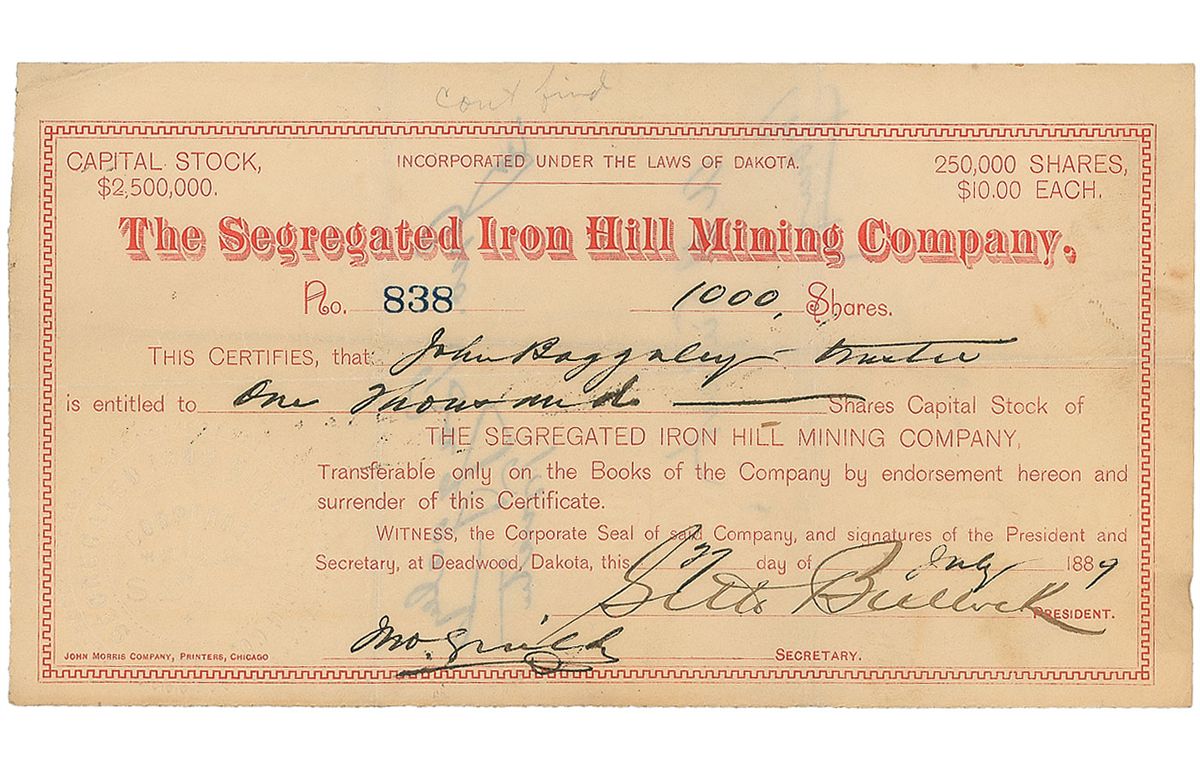 cont find
CAPITAL STOCK, INCORPORATED UNDER THE LAWS OF DAKOTA. 250,000 SHARES,
$2,500,000. $10.00 EACH.
The Segregated Iron Hill Mining Company.
No. 838 1000, Shares.
THIS CERTIFIES, that John Baggaley - trustee
is entitled to One Thousand Shares Capital Stock of
THE SEGREGATED IRON HILL MINING COMPANY,
Transferable only on the Books of the Company by endorsement hereon and
surrender of this Certificate.
WITNESS, the Corporate Seal of said Company, and signatures of the President and
Secretary, at Deadwood, Dakota, this day of July 1889
Seth Bullock PRESIDENT.
SECRETARY.
JOHN MORRIS COMPANY, PRINTERS, CHICAGO